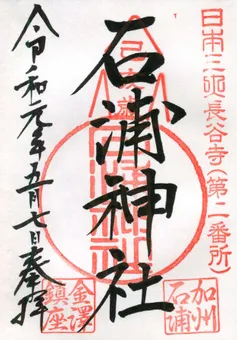 日本三所長谷寺(第二番所)
石浦神社
令和元年五月七日奉拝
加州
石浦
金澤
鎮座